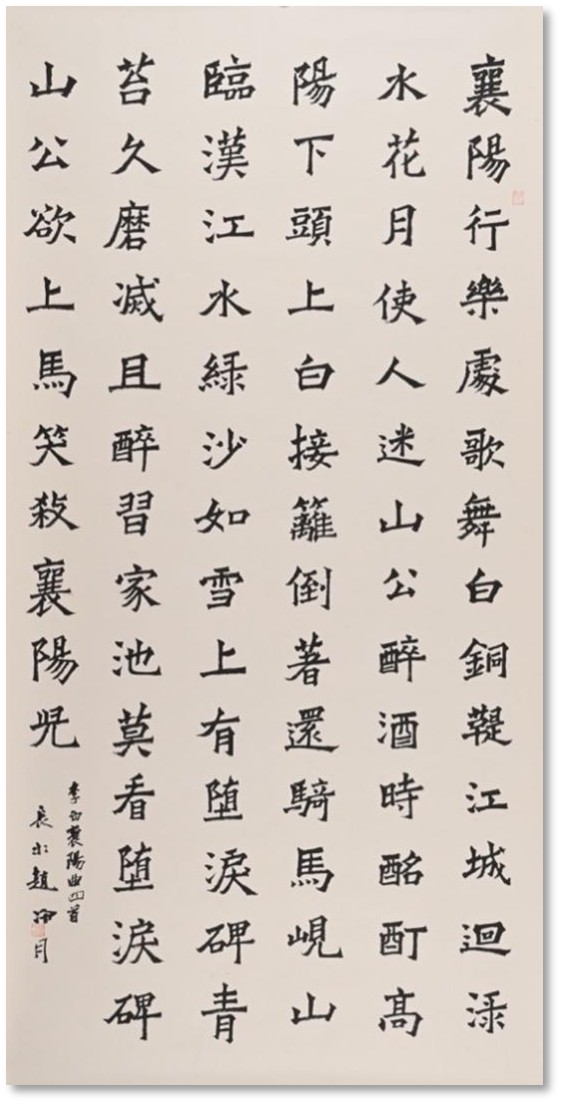 襄陽行樂處歌舞白銅鞮江城迴渌
水花月使人迷山公醉酒時酩酊高
陽下頭上白接籬倒著還騎馬峴山
臨漢江水緑沙如雪上有堕淚碑青
苔久磨滅且醉習家池莫看堕淚碑
山公欲上馬笑殺襄陽兒
李白襄陽曲四首
趙 月